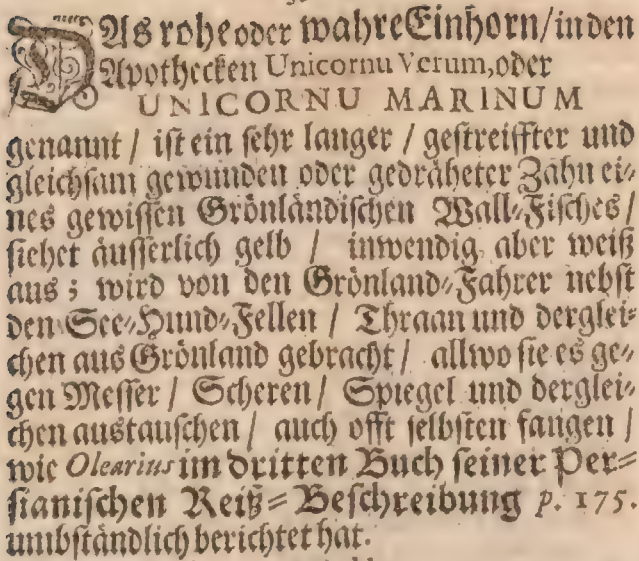 DAs rohe oder wahre Einhorn/ in den
Apothecken Unicornu Verum, oder
UNICORNU MARINUM
genannt / ist ein sehr langer / gestreiffter und
gleichsam gewunden oder gedräheter Zahn ei-
nes gewissen Grönländischen Wall-Fisches /
siehet äusserlich gelb / inwendig aber weiß
aus ; wird von den Grönland-Fahrer nebst
den See-Hund-Fellen / Thraan und derglei-
chen aus Grönland gebracht / allwo sie es ge-
gen Messer / Scheren / Spiegel und derglei-
chen austauschen / auch offt selbsten fangen /
wie Olearius im dritten Buch seiner Per-
sianischen Reiß-Beschreibung p. 175.
umbständlich berichtet hat.